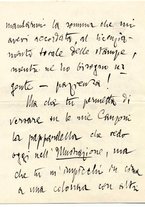 mandarmi la somma che mi
avevi accordato, al
totale delle stampe,
mentre ne ho bisogno ur-
gente — pazienza!
Ma che tu permetta di
versare in le mie Canzoni
la pappardella che vedo
oggi nell'Illustrazione, ma
che tu m'impicchi in cima
a una colonna con altri